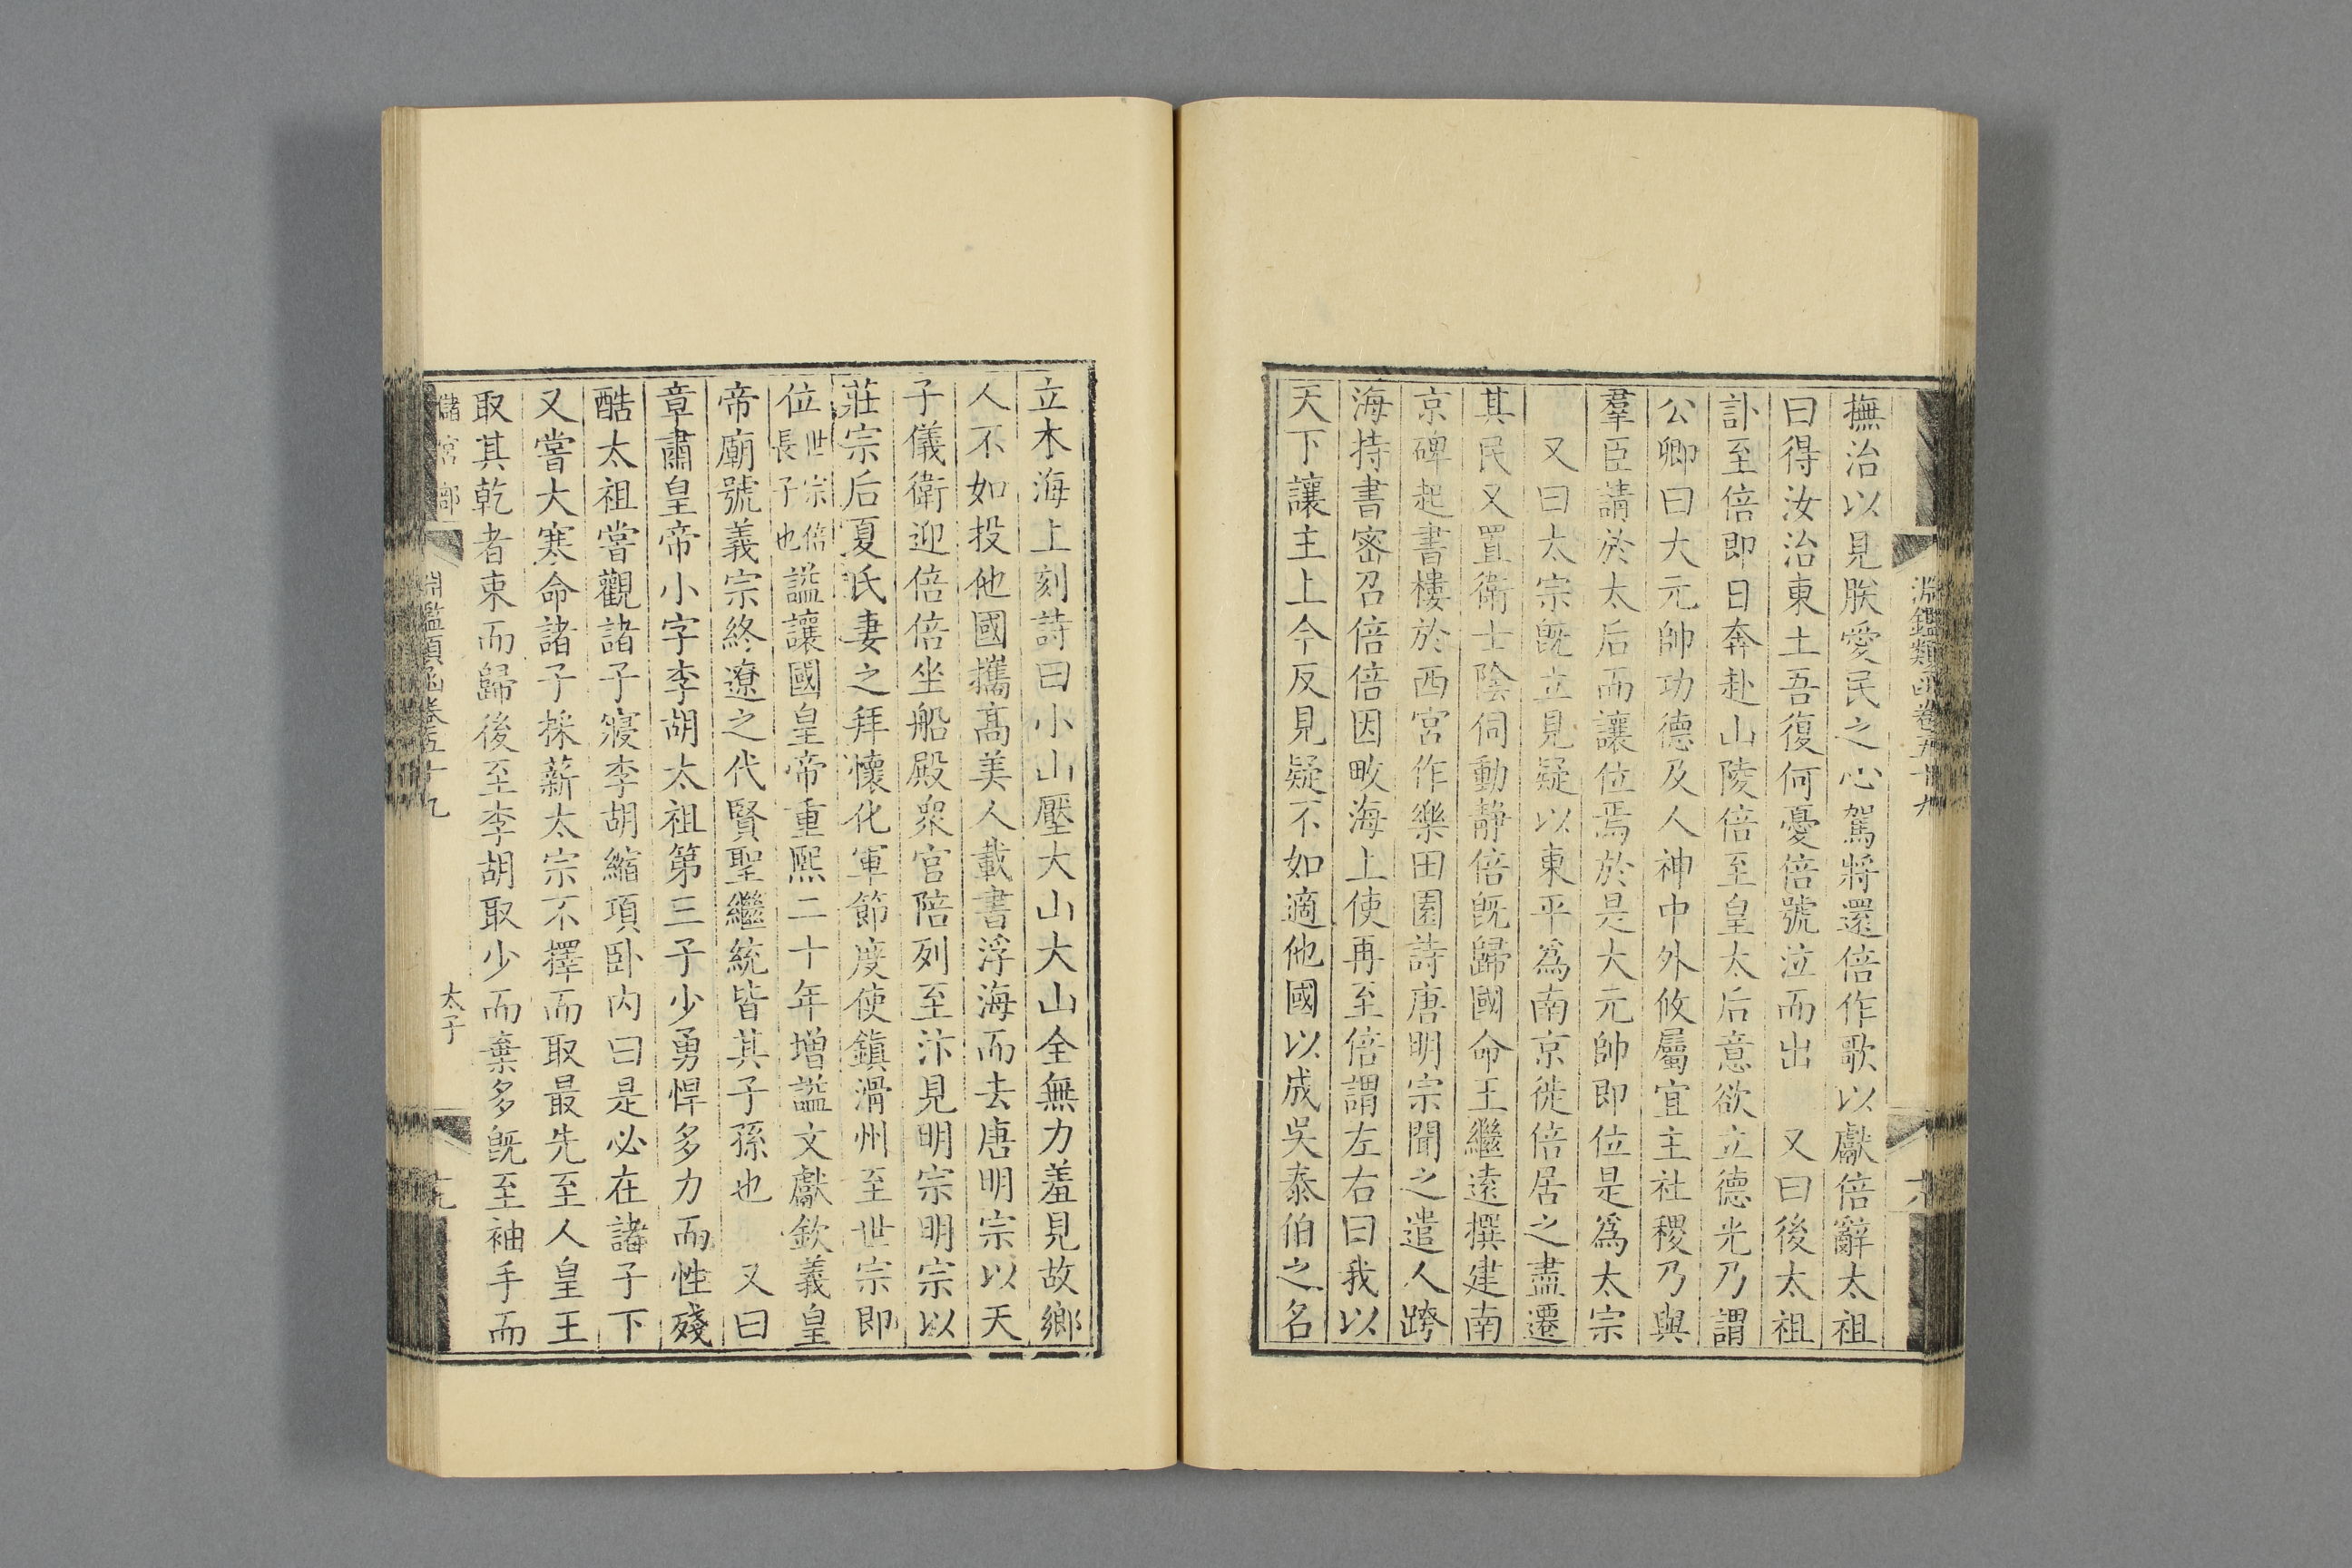 淵鑑類函卷五十九
撫治以見朕愛民之心駕將還倍作歌以獻倍辭太祖
曰得汝治東土吾復何憂倍號泣而出　又曰後太祖
訃至倍即日奔赴山陵倍至皇太后意欲立德光乃謂
公卿曰大元帥功德及人神中外攸屬宜主社稷乃與
羣臣請於太后而讓位焉於是大元帥即位是爲太宗
又曰太宗旣立見疑以東平爲南京徙倍居之盡遷
其民又置衛士陰伺動靜倍旣歸國命王繼遠撰建南
京碑起書樓於西宮作樂田園詩唐明宗聞之遣人跨
海持書密召倍倍因畋海上使再至倍謂左右曰我以
天下讓主上今反見疑不如適他國以成吳泰伯之名
立木海上刻詩曰小山壓大山大山全無力羞見故鄉
人不如投他國攜高美人載書浮海而去唐明宗以天
子儀衛迎倍倍坐船殿衆宮陪列至汴見明宗明宗以
莊宗后夏氏妻之拜懷化軍節度使鎭滑州至世宗即
位世宗倍長子也謚讓國皇帝重熙二十年增謚文獻欽義皇
帝廟號義宗終遼之代賢聖繼統皆其子孫也　又曰
章肅皇帝小字李胡太祖第三子少勇悍多力而性殘
酷太祖嘗觀諸子寢李胡縮項卧内曰是必在諸子下
又嘗大寒命諸子採薪太宗不擇而取最先至人皇王
取其乾者束而歸後至李胡取少而棄多旣至袖手而
儲宮部　淵鑑類函卷五十九　太子　十九